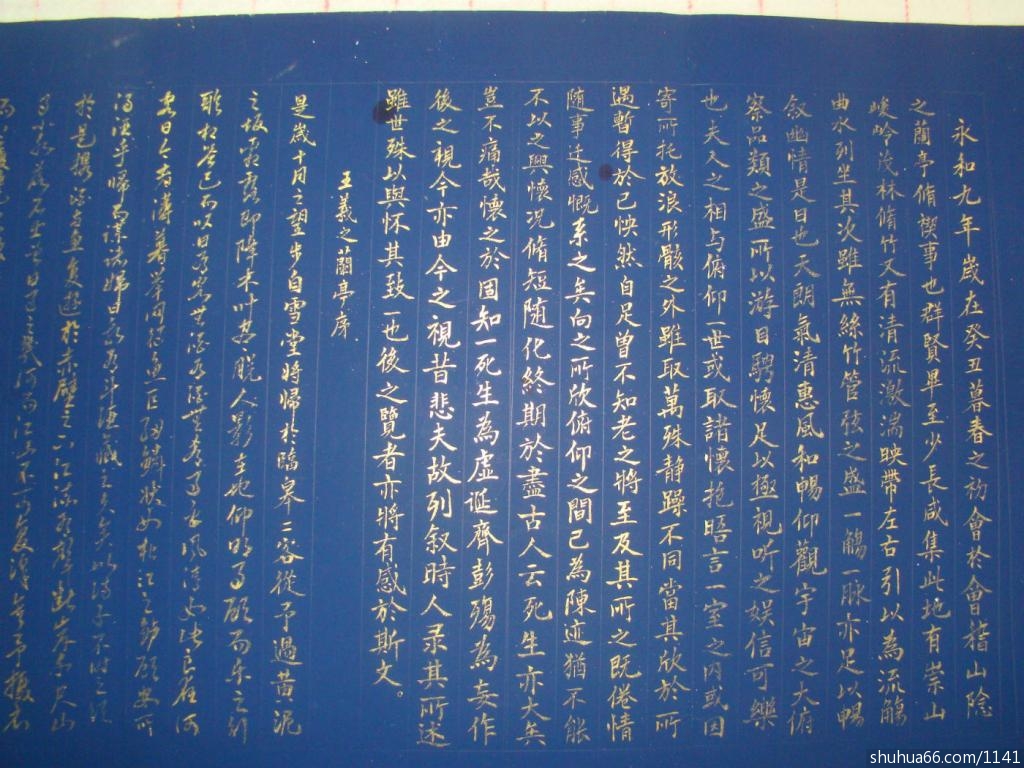 永和九年歲在癸丑暮春之初會於會稽山陰
之蘭亭脩禊事也群賢畢至少長咸集此地有崇山
峻岭茂林脩竹又有清流激湍映帶左右引以為流觴
曲水列坐其次雖無絲竹管弦之盛一觴一脉亦足以暢
叙幽情是日也天朗氣清惠風和暢仰觀宇宙之大俯
察品類之盛所以游目騁懷足以極視听之娱信可樂
也夫人之相与俯仰一世或取諸懷抱晤言一室之内或因
寄所托放浪形骸之外雖取萬殊静躁不同當其欣於所
遇暫得於己怏然自足曾不知老之將至及其所之既倦情
随事迁感慨系之矣向之所欣俯仰之間已為陳迹猶不能
不以之興懷况脩短随化終期於盡古人云死生亦大矣
豈不痛哉懷之於固知一死生為虚诞齊彭殤為妄作
後之視今亦由今之視昔悲夫故列叙時人录其所述
雖世殊以與怀其致一也後之覽者亦將有感於斯文。
王羲之蘭亭序
是歲十月之望步自雪堂將歸於臨皋二客從予過黄泥
之坂霜露即降木叶盡脱人影在地仰明月顧而乐之行
歌相答已而叹曰有客無酒有酒無肴月白風清如此良夜何
客曰今者薄暮举网得鱼巨口細鱗狀如松江之鲈顾安所
得酒乎歸而谋诸婦婦曰我有斗酒藏之久矣以待子不時之須
於是携酒与鱼复遊於赤壁之下江流有聲断岸千尺山
shuhua66.com/1141